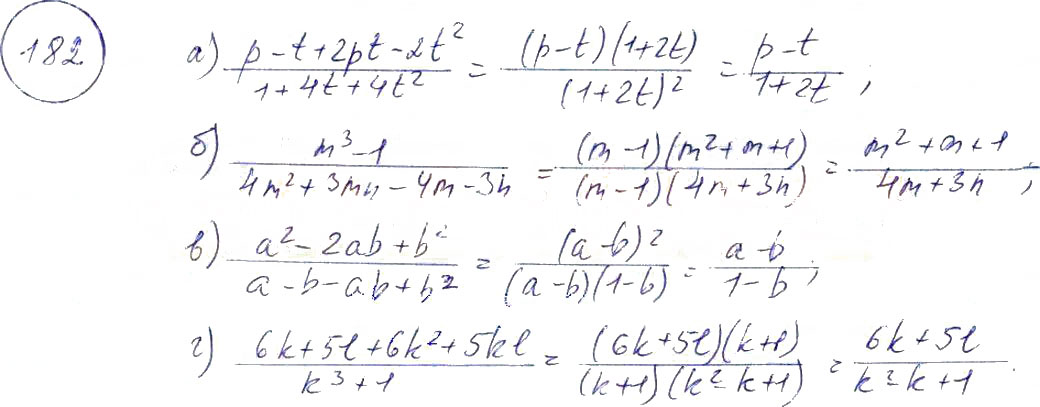 182 а) (p-t+2pt-2t²)/(1+4t+4t²) = ((p-t)(1+2t))/((1+2t)²) = (p-t)/(1+2t);
б) (m³-1)/(4m²+3mn-4m-3n) = ((m-1)(m²+m+1))/((m-1)(4m+3n)) = (m²+m+1)/(4m+3n);
в) (a²-2ab+b²)/(a-b-ab+b²) = ((a-b)²)/((a-b)(1-b)) = (a-b)/(1-b);
г) (6k+5l+6k²+5kl)/(k³+1) = ((6k+5l)(k+1))/((k+1)(k²-k+1)) = (6k+5l)/(k²-k+1).